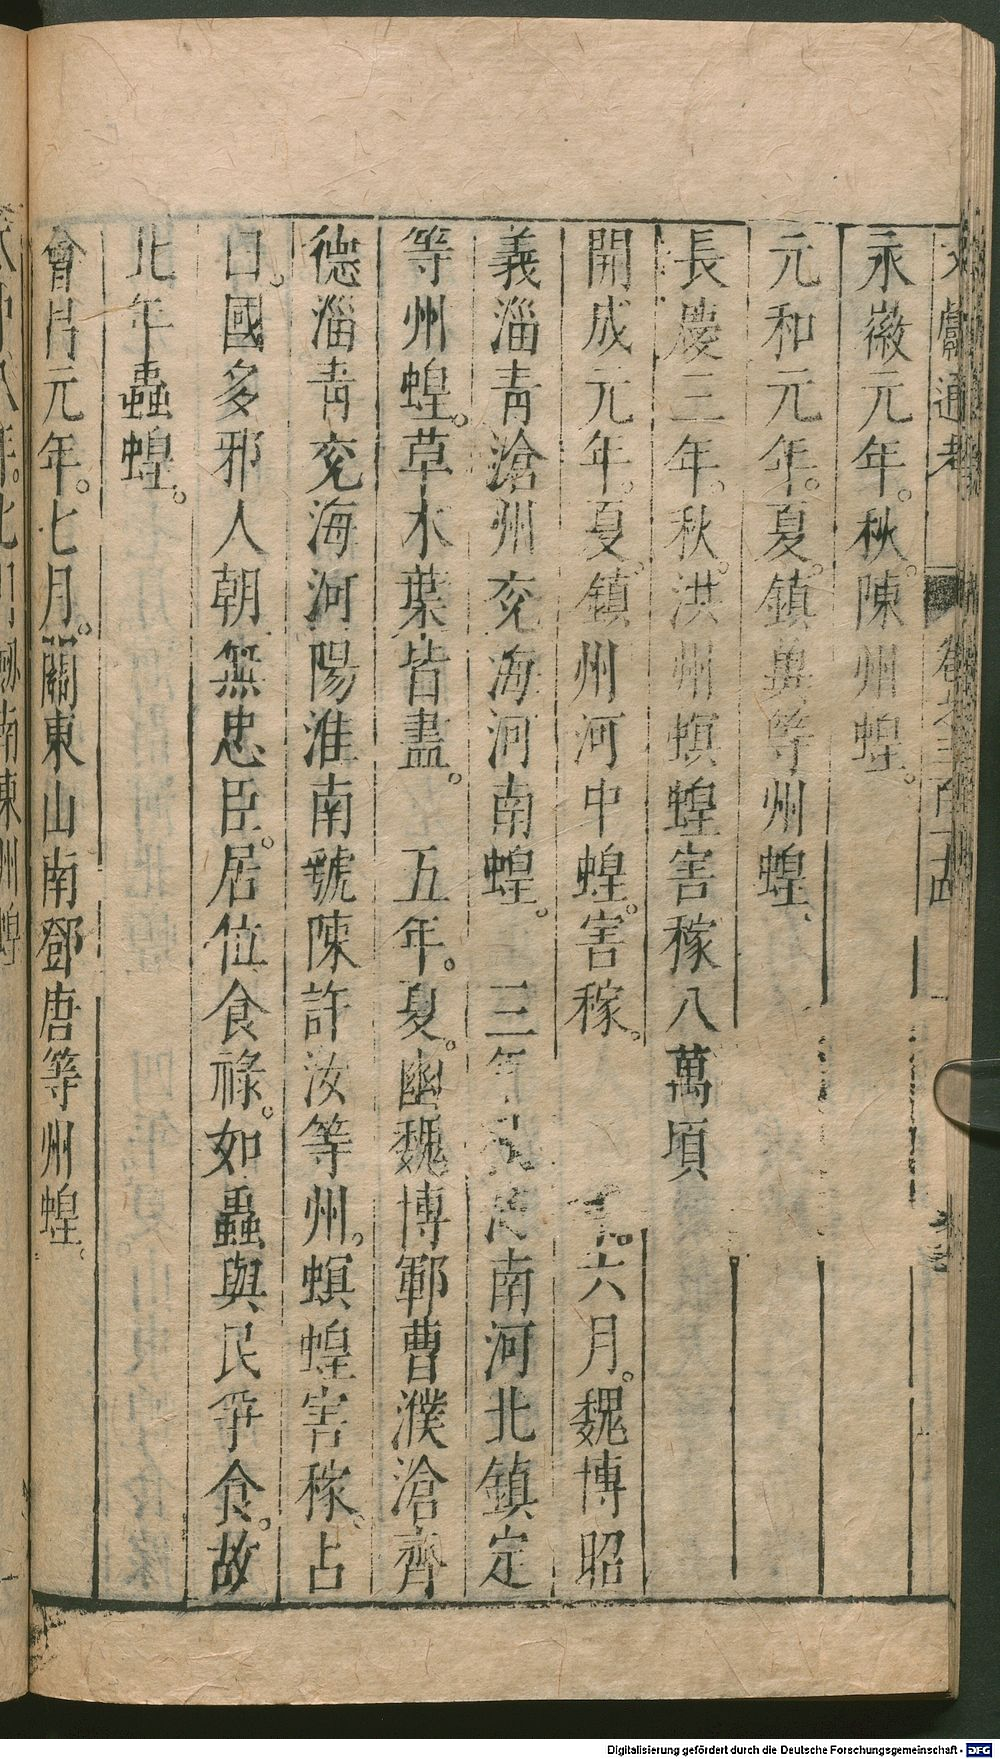 文獻通考 卷之三百十四
永徽元年。秋。陳州蝗。
元和元年。夏。鎮冀等州蝗
長慶三年。秋。洪州螟蝗害稼八萬頃
開成元年。夏。鎮州河中蝗。害稼。 六月。魏博昭
義淄青滄州兗海河南蝗。 三年 南河北鎮定
等州蝗。草木葉皆盡。 五年。夏。幽魏博鄆曹濮滄齊
德淄青兗海河陽淮南虢陳許汝等州。螟蝗害稼。占
曰。國多邪人朝無忠臣。居位食祿。如蟲與民爭食。故
比年蟲蝗。
會昌元年。七月。關東山南鄧唐等州蝗。
南陳州蝗
Digitalisierung gefördert durch die Deutsche Forschungsgemeinschaft - DFG